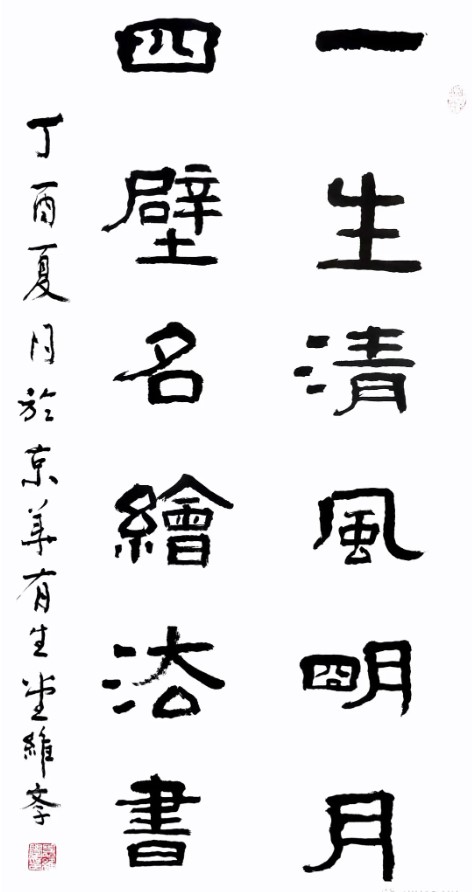 一生清風明月
四壁名繪法書
丁酉夏月於京華有生堂維孝